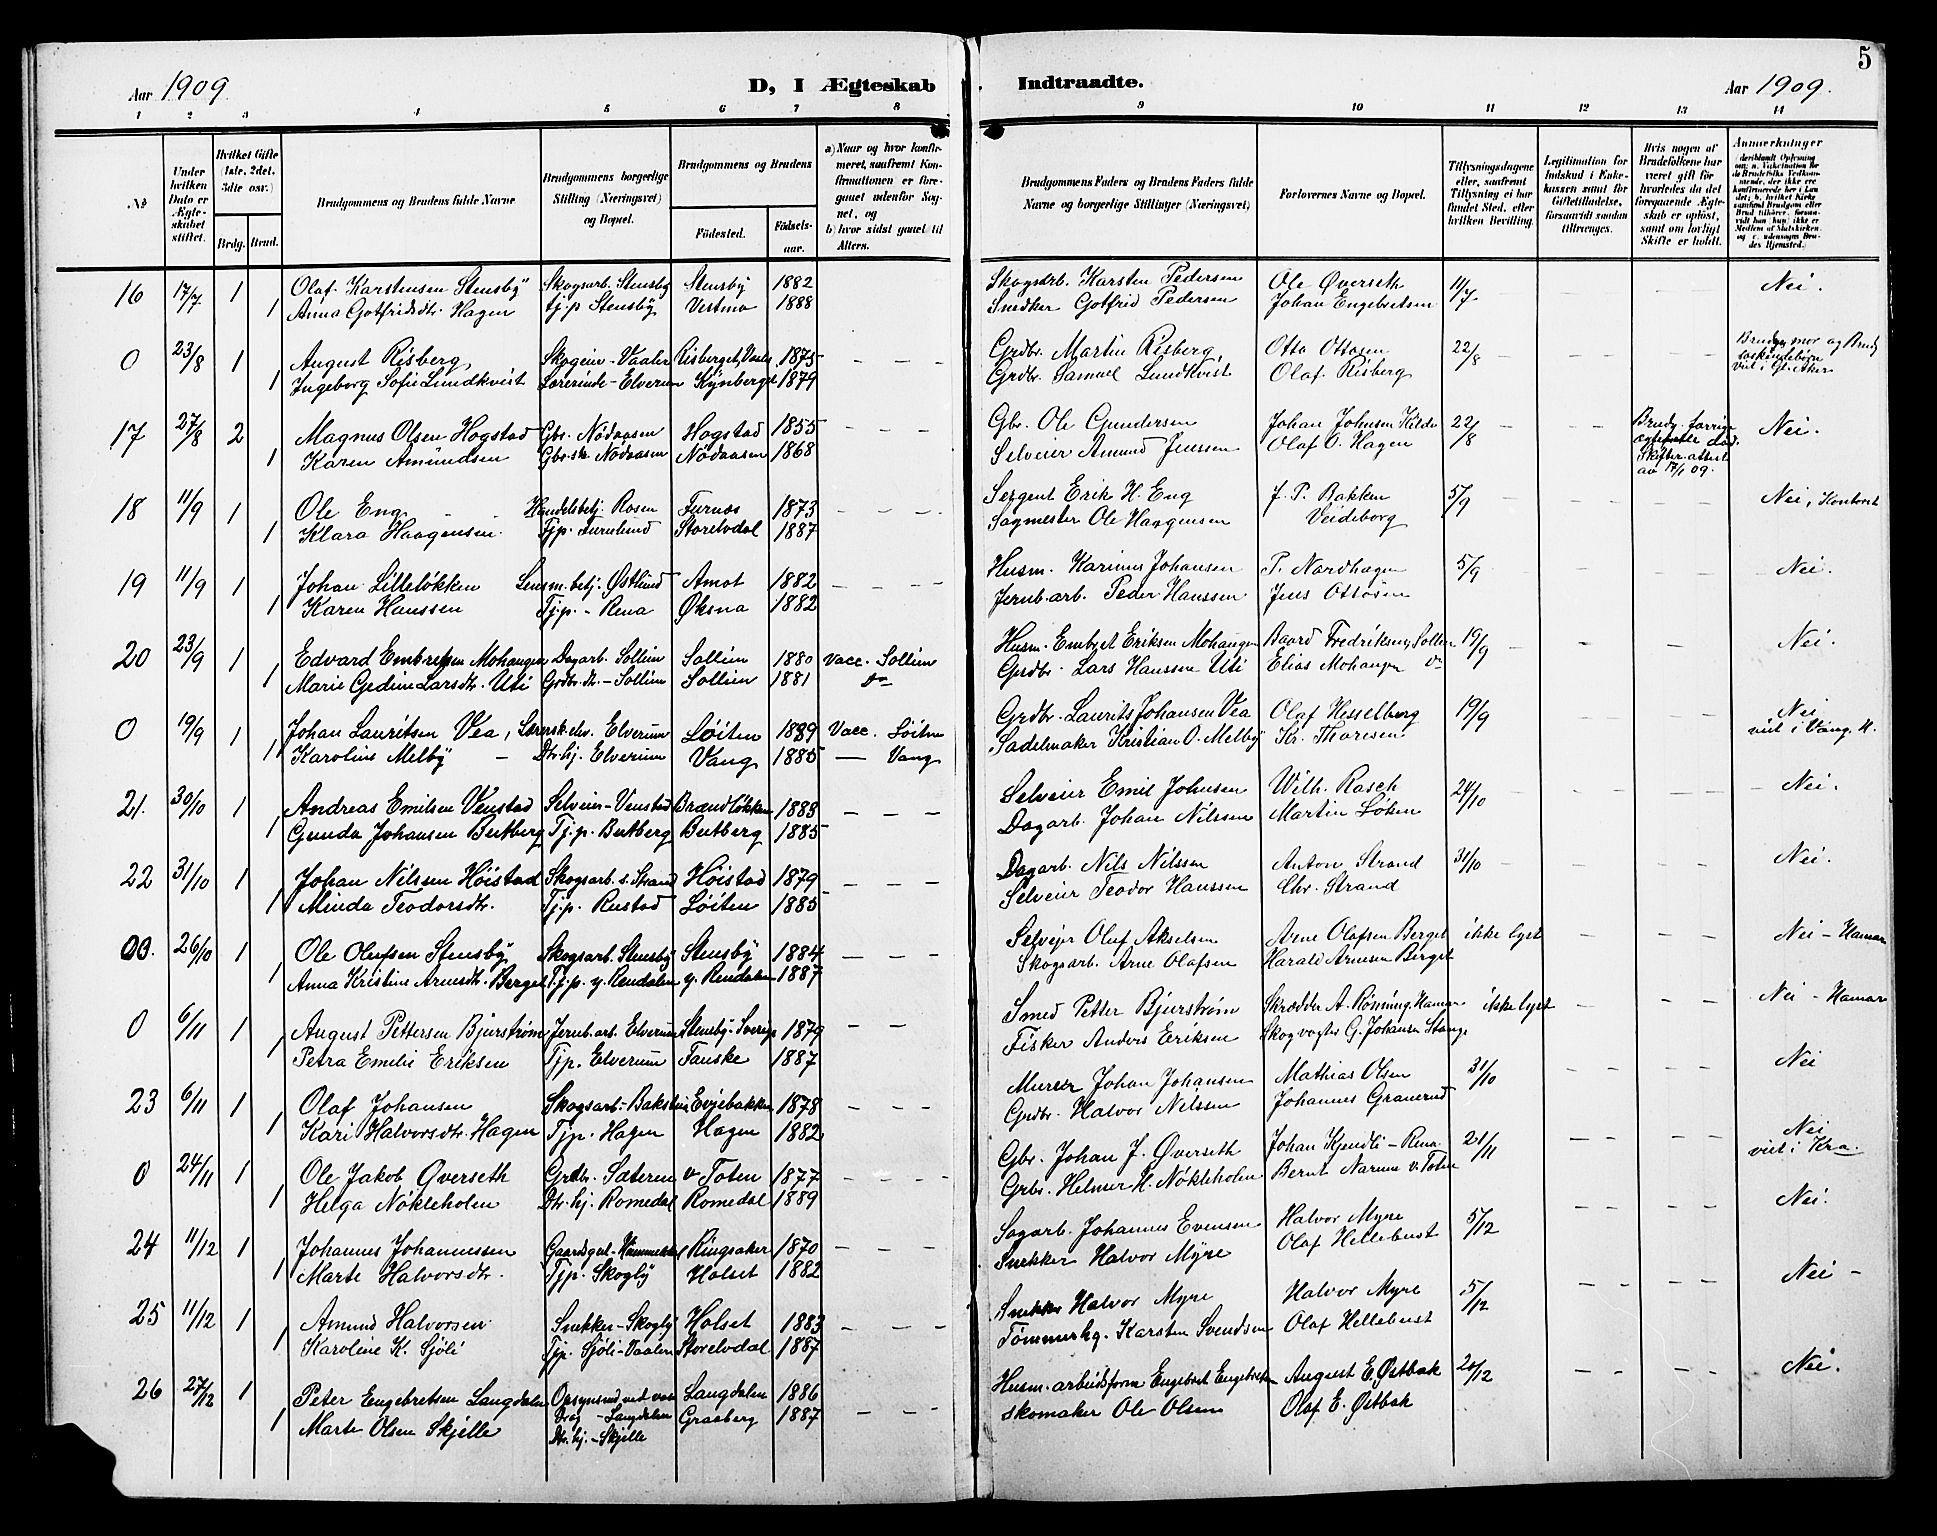 5
Aar 1909
D, I Ægteskab Indtraadte.
Aar 1909.
1 2 3 4 5 6 7 8 9 10 11 12 13 14
No
Under hvilken Dato er Ægteskabet stiftet.
Hvilket Gifte (1ste, 2det, 3die osv.)
Brdg. Brud.
Brudgommens og Brudens fulde Navne
Brudgommens borgerlige Stilling (Næringsvei) og Bopæl.
Brudgommens og Brudens
Fødested.
Fødselsaar.
a) Naar og hvor konfirmeret, saafremt Konfirmationen er foregaaet udenfor Sognet, og
b) hvor sidst gaaet til Alters.
Brudgommens Faders og Brudens Faders fulde Navne og borgerlige Stillinger (Næringsvei)
Forlovernes Navne og Bopæl.
Tillysningsdagene eller, saafremt Tillysning ei har fundet Sted, efter hvilken Bevilling.
Legitimation for Indskud i Enkekassen samt for Giftetilladelse, forsaavidt saadan tiltrænges.
Hvis nogen af Brudefolkene har været gift før hvorledes da det foregaaende Ægteskab er opløst, samt om lovligt Skifte er holdt.
Anmærkninger
16 17/7 1 Olaf Karstensen Stensby Skogsarb. Stensby Stensby 1882 – – – Skogsarb. Karsten Pedersen Ole Øverseth 11/7 – – – Nei.
1 Anna Gotfridsdtr. Hagen tjp Stensby Vestmo 1888 Snedker Gotfrid Pedersen Johan Engebretsen
0 23/8 1 August Risberg Skogeier - Vaaler Risberget, Vaaler 1875 – – – Grdbr. Martin Risberg, Otto Ottosen 22/8 – – – Brudg. mor og Brud søskendebørn
1 Ingeborg Sofie Lundkvist Lærerinde - Elverum Kynberget 1879 Grdbr. Samuel Lundkvist Olaf Risberg viet i
17 27/8 2 Magnus Olsen Hogstad Gbr. Nödaasen Hogstad 1855 – – – Gbr. Ole Gundersen Johan Johnsen Kilde 22/8 – – – Brudg. forrige ægtefælle død. Skifteattest av 17/1 09. Nei.
1 Karen Amundsen Gbr.sk. Nödaasen Nödaasen 1868 Selveier Amund Jensen Olaf O. Hagen
18 11/9 1 Ole Eng Handelsbetj. Rosen Furnes 1873 – – – Sergent Erik H. Eng J. P. Bakken 5/9 – – – Nei,
1 Klara Haagensen. Tjp. Furulund Storelvdal 1887 Sagmester Ole Haagensen Veideborg
19 11/9 1 Johan Lilleløkken Lensm.betj. Østlund Amot 1882 – – – Husm. Karinus Johansen P. Nordhagen 5/9 – – – Nei.
1 Karen Hanssen Tjp. - Rena Øksna 1882 Jernb.arb. Peder Hanssen Jens Ottosen
20 23/9 1 Edvard Embretsen Mohaugen Dagarb. Sollien Sollien 1880 Vacc. Sollien Husm. Embret Eriksen Mohaugen Baard Fredriksen, Sollien 19/9 – – – Nei.
1 Marie Gedine Larsdtr. Uti Grdbr.dtr. - Sollien Sollien 1881 Do Grdbr. Lars Hanssen Uti Elias Mohaugen Do
0 19/9 1 Johan Lauritsen Vea, Elverum Løiten 1889 Vacc. Løiten Grdbr. Laurits Johansen Vea Olaf Hesselberg 19/9 – – – Nei
1 Karoline Melby – Dtr. hj. Elverum Vang 1885 — Vang Sadelmaker Kristian O. Melby Kr. Thoresen viet i Vang, H.
21. 30/10 1 Andreas Emilsen Venstad Selveier - Venstad Brændløkken 1883 – – – Selveier Emil Johnsen Wilh. Rasch 24/10 – – – Nei.
1 Gunda Johansen Butberg Tj.p. Butberg Butberg 1885 Dagarb. Johan Nilssen Martin Løken
22 31/10 1 Johan Nilssen Høistad Skogsarb. s. Strand Høistad 1879 – – – Dagarb. Nils Nilssen Anton Strand 31/10 – – – Nei.
1 Minda Teodorsdtr. Tj.p. Rustad Løiten 1885 Selveier Teodor Hanssen Chr. Strand
00. 26/10 1 Ole Olufsen Stensby Skogsarb. Stensby Stensby 1884 – – – Selveier Oluf Akselsen Arne Olafsen Berget ikke lyst – – – Nei - Hamar
1 Anna Kristine Arnesdtr. Berget Tj.p. y. Rendalen y. Rendalen 1887 Skogsarb. Arne Olafsen Harald Arnesen Berget
0 6/11 1 August Pettersen Bjurstrøm Jernb.arb. Elverum Stensby - Sverige 1879 – – Smed Petter Bjurstrøm Skrædder A. Rønning, Hamar ikke lyst – – – Nei - Hamar
1 Petra Emilie Eriksen Tjp. Elverum Fauske 1887 Fisker Anders Eriksen Skogvogter G. Johansen Stange
23 6/11 1 Olaf Johansen Skogsarb. - Evjebakken 1878 – – – Murer Johan Johansen Mathias Olsen 31/10 – – – Nei
1 Kari Halvorsdtr. Hagen Tjp. Hagen Hagen 1882 Grdbr. Halvor Nilssen Johannes Granerud
0 24/11 1 Ole Jakob Øverseth Grdbr. Sæteren v. Toten 1877 – – – Gbr. Johan J. Øverseth Johan Kjendli - Rena 21/11 – – – Nei
1 Helga Nökleholm Dtr. hj. Romedal Romedal 1889 Grbr. Helmer H. Nökleholm Bernt Narum v. Toten viet i Kra.
24 11/12 1 Johannes Johannessen Ringsaker 1870 – – – Sagarb. Johannes Evensen Halvor Myre 5/12 – – – Nei.
1 Marte Halvorsdtr. Tjp. Skogly Holset 1882 Snekker Halvor Myre Olaf Hellebust
25 11/12 1 Amund Halvorsen Snekker - Skogly Holset 1883 – – – Snekker Halvor Myre Halvor Myre 5/12 – – – Nei -
1 Karoline K. Sjöli Tjp. Sjöli - Vaaler Storelvdal 1887 Tømmerhg. Karsten Svendsen Olaf Hellebust
26 27/12 1 Peter Engebretsen Langdalen Opsynsmd ved Langdalen 1886 – – – Husm. arbeidsform Engebret Engebretsen August E. Østbak 20/12 – – – Nei.
1 Marte Olsen Skjelle - Langdalen Graaberg 1887 skomaker Ole Olsen Olaf E. Østbak
Dtr. hj. - Skjelle